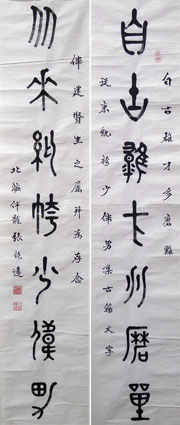 自古雄才多磨難
自古雄才多磨難
從來紈袴少偉男集古籀文字
偉建賢生之屬并為存念
从來紈袴少偉男
北海